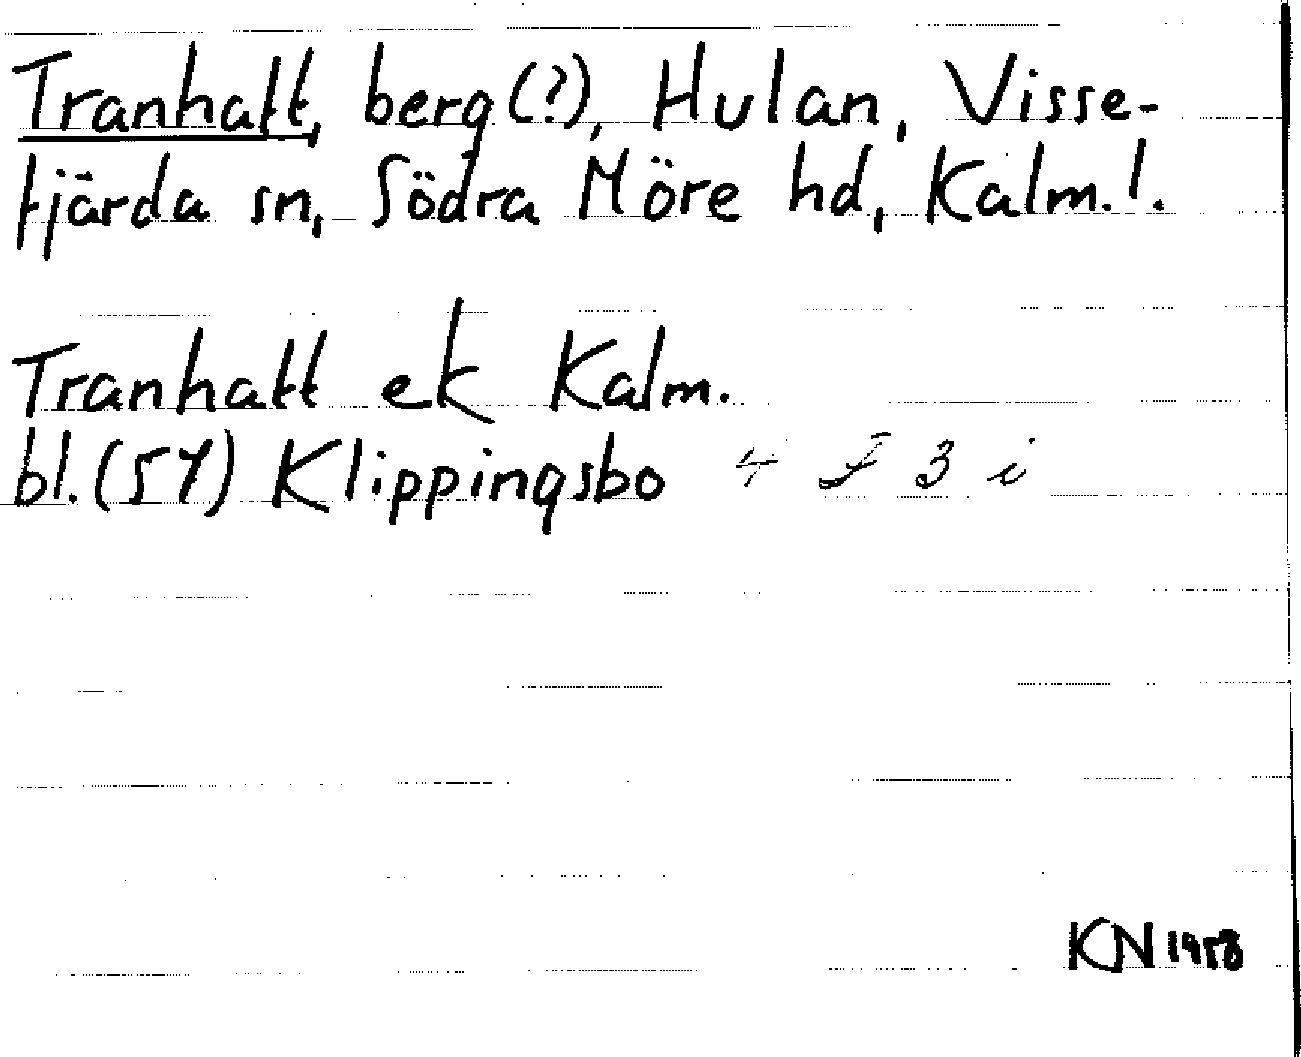 Tranhatt, berg(?), Hulan, Visse-
fjärda sn, Södra Möre hd, Kalm.l.
Tranhatt ek Kalm.
bl.(57) Klippingsbo 4 F 3 i
KN 1958